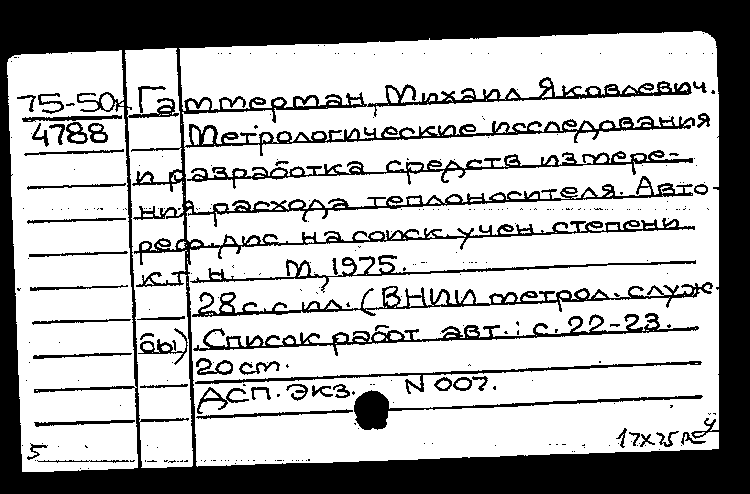 75-50к Гаммерман, Михаил Яковлевич.
4788 Метрологические исследования
и разработка средств измере-
ния расхода теплоносителя. Авто-
реф. дис. на соиск. учен. степени
к.т.н. М., 1975.
28 с. с ил. (ВНИИ метрол. служ-
бы) Список работ авт.: с. 22-23.
20 см.
ДСП. Экз. N 007.
5 17X75